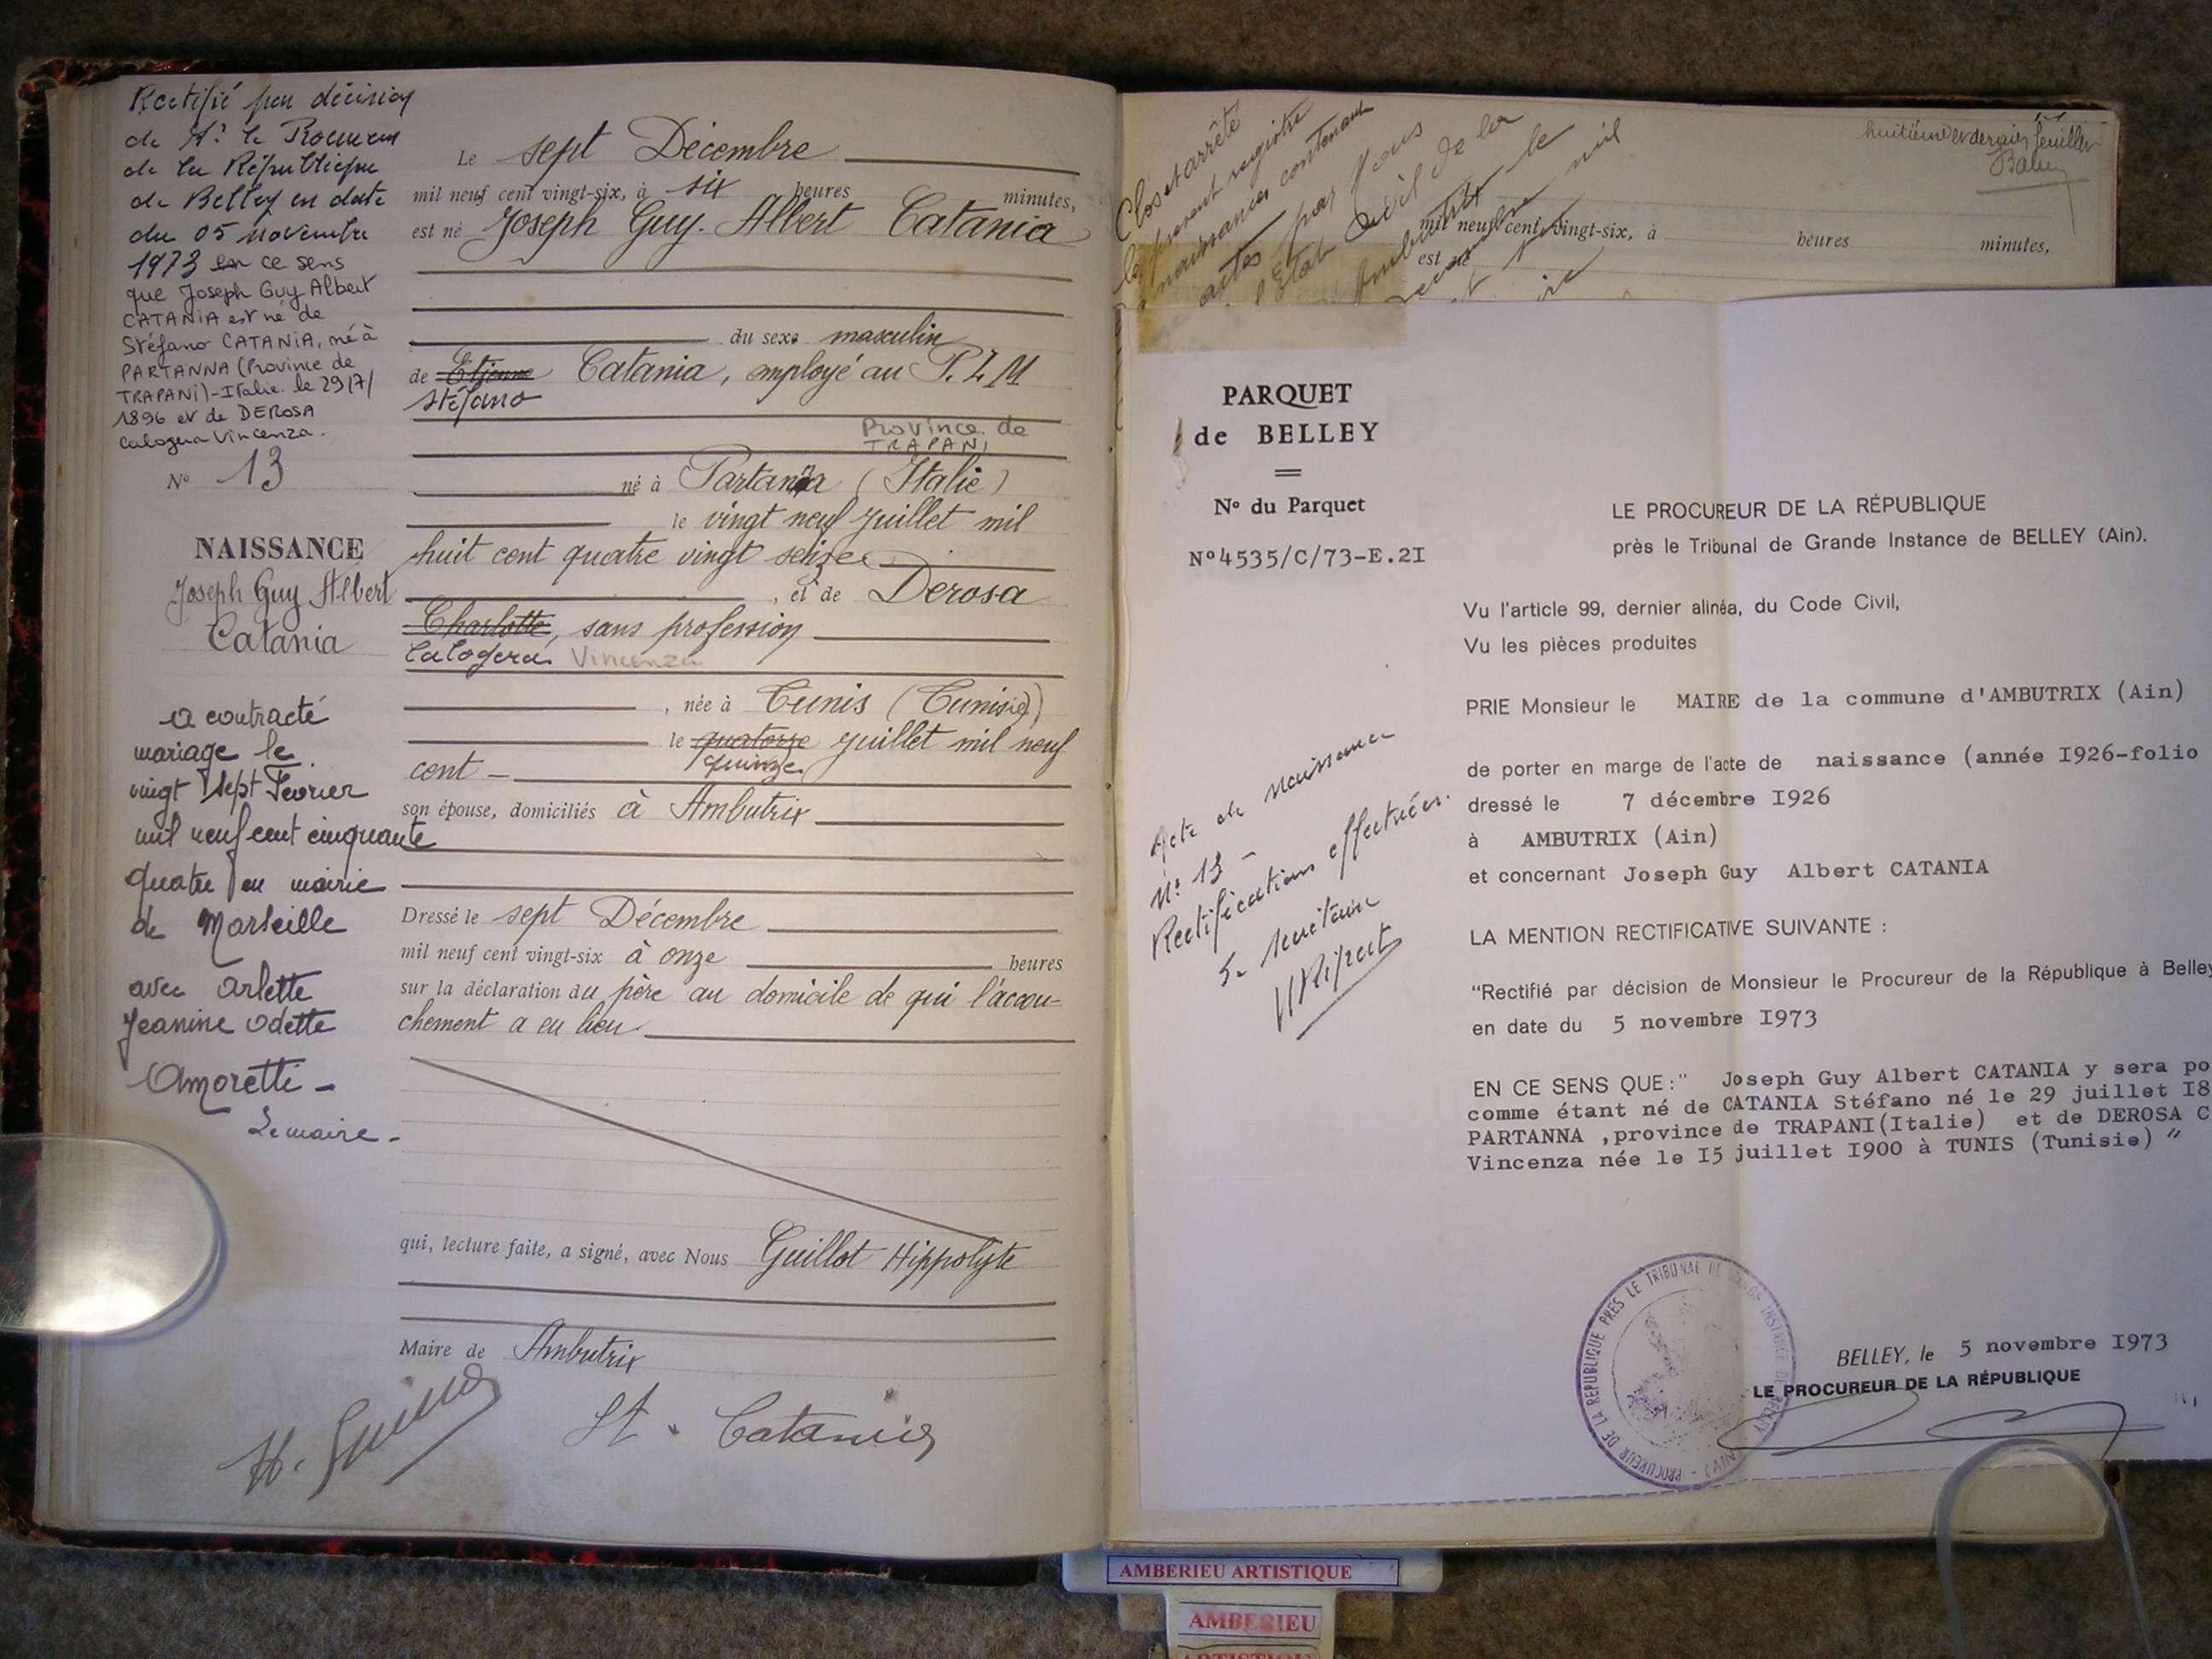 Rectifié par décision
de Mr le Procureur
de la République
de Belley en date
du 05 novembre
1973 en ce sens
que Joseph Guy Albert
CATANIA est né de
Stéfano CATANIA, né à
PARTANNA (Province de
TRAPANI)-Italie. le 29/7/
1896 et de DEROSA
Calogera Vincenza.
N° 13
NAISSANCE
Joseph Guy Albert
Catania
a contracté
mariage le
vingt sept Fevrier
mil neuf cent cinquante
quatre en mairie
de Marseille
avec Arlette
Jeanine Odette
Amoretti -
Le maire -
Le sept Décembre
mil neuf cent vingt-six, à six heures minutes,
est né Joseph Guy. Albert Catania
du sexe masculin
de Etienne Catania, employé au P.L.M
Stéfano
Province de
TRAPANI
né à Partanna (Italie)
le vingt neuf Juillet mil
huit cent quatre vingt seize
, et de Derosa
Charlotte, sans profession
Calogera Vincenza
, née à Tunis (Tunisie)
le quatorze juillet mil neuf
quinze
cent -
son épouse, domiciliés à Ambutrix
Dressé le sept Décembre
mil neuf cent vingt-six à onze heures
sur la déclaration du père au domicile de qui l'accou-
chement a eu lieu
qui, lecture faite, a signé, avec Nous Guillot Hippolyte
Maire de Ambutrix
St. Catania
Clos et arrêté
le présent registre
naissances contenant
actes par Nous
l'Etat Civil de la
Ambutrix le
mil
huitième et dernier feuillet
mil neuf cent vingt-six, à heures minutes,
est né
PARQUET
de BELLEY
N° du Parquet
N°4535/C/73-E.2I
LE PROCUREUR DE LA RÉPUBLIQUE
près le Tribunal de Grande Instance de BELLEY (Ain).
Vu l'article 99, dernier alinéa, du Code Civil,
Vu les pièces produites
PRIE Monsieur le MAIRE de la commune d'AMBUTRIX (Ain)
de porter en marge de l'acte de naissance (année I926-folio
dressé le 7 décembre I926
à AMBUTRIX (Ain)
et concernant Joseph Guy Albert CATANIA
LA MENTION RECTIFICATIVE SUIVANTE :
"Rectifié par décision de Monsieur le Procureur de la République à Belley
en date du 5 novembre I973
EN CE SENS QUE:" Joseph Guy Albert CATANIA y sera po
comme étant né de CATANIA Stéfano né le 29 juillet I8
PARTANNA ,province de TRAPANI(Italie) et de DEROSA C
Vincenza née le I5 juillet I900 à TUNIS (Tunisie) "
Acte de naissance
N° 13 -
Rectifications effectuées.
Le secrétaire
PROCUREUR DE LA REPUBLIQUE PRES LE TRIBUNAL DE GRANDE INSTANCE DE BELLEY - (AIN)
BELLEY, le 5 novembre I973
LE PROCUREUR DE LA RÉPUBLIQUE
AMBERIEU ARTISTIQUE
AMBERIEU
ARTISTIQUE